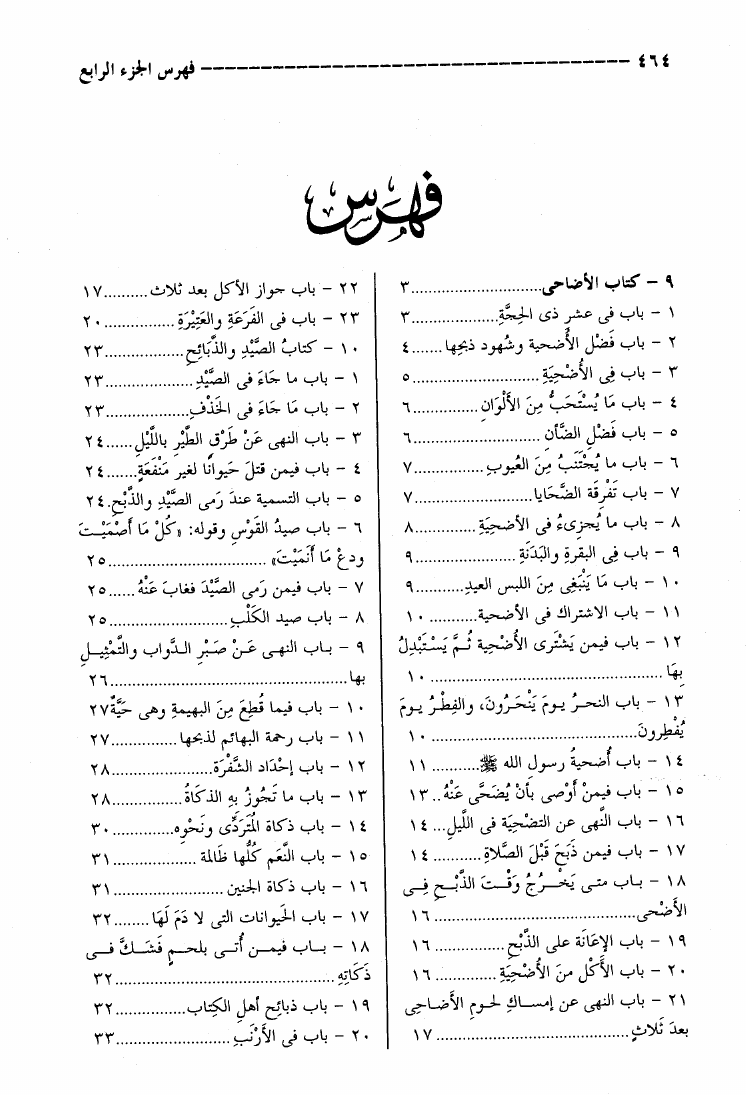 ٤٦٤ ــــــ فهرس الجزء الرابع
فهرس
٩ – كتاب الأضاحى..............................٣
١ – باب فى عشرِ ذى الحِجَّةِ....................٣
٢ – باب فَضْل الأُضحية وشُهود ذبحِها.......٤
٣ – باب فِى الأُضْحِيَةِ..............................٥
٤ – باب مَا يُسْتَحَبُّ مِنَ الأَلْوَانِ..............٦
٥ – باب فَضْلِ الضَّأن............................٦
٦ – باب ما يُجْتَنَبُ مِنَ العُيوبِ................٧
٧ – باب تَفْرِقَة الضَّحَايا..........................٧
٨ – باب ما يُجزِىءُ فى الأضحِيَةِ................٨
٩ – باب فِى البقرةِ والبَدَنَةِ........................٩
١٠ – باب مَا يَنْبَغِى مِنَ اللبس العيدِ...........٩
١١ – باب الاشتراك فى الأضحية............١٠
١٢ – باب فيمن يَشْتَرى الأُضْحِية ثُمَّ يَسْتَبْدِلُ
بِهَا................................................١٠
١٣ – باب النحرُ يومَ يَنْحَرُونَ، والفِطْرُ يومَ
يُفْطِرونَ..........................................١٠
١٤ – باب أُضحيةُ رسول الله ﷺ............١١
١٥ – باب فيمنْ أَوْصى بأنْ يُضَحَّى عَنْهُ..١٣
١٦ – باب النَّهى عن التضحِيَة فى اللَّيلِ....١٤
١٧ – باب فيمن ذَبَحَ قَبْلَ الصَّلاةِ...........١٤
١٨ – باب متى يَخْرُجُ وَقْتَ الذَّبْحِ فِى
الأَضْحى..........................................١٦
١٩ – باب الإِعَانَة على الذَّبْحِ..................١٦
٢٠ – باب الأَكْل منَ الأُضْحِيَةِ................١٦
٢١ – باب النهى عن إمساكِ لحومِ الأضاحِى
بعدَ ثَلاثٍ........................................١٧
٢٢ – باب جواز الأكل بعد ثلاث..........١٧
٢٣ – باب فى الفَرَعَةِ والعَتِيْرَةِ................٢٠
١٠ – كتابُ الصَّيْدِ والذَّبَائِحِ..................٢٣
١ – باب ما جَاءَ فى الصَّيْدِ....................٢٣
٢ – باب مَا جَاءَ فى الخَذْفِ....................٢٣
٣ – باب النهى عَنْ طَرْقِ الطَّيْرِ بالليْلِ.....٢٤
٤ – باب فيمن قتلَ حَيوانًا لغير مَنْفَعَةٍ......٢٤
٥ – باب التسمية عندَ رَمى الصَّيْدِ والذَّبْحِ.٢٤
٦ – باب صيدُ القَوْسِ وقوله: «كُلْ مَا أَصْمَيْتَ
ودعْ مَا أَنَميْتَ»..................................٢٥
٧ – باب فيمن رَمى الصَّيْدَ فغابَ عَنْهُ......٢٥
٨ – باب صيد الكَلْبِ............................٢٥
٩ – باب النهى عَنْ صَبْرِ الدَّواب والتَّمْثِيلِ
بها..................................................٢٦
١٠ – باب فيما قُطِعَ مِنَ البهيمةِ وهى حَيَّةٌ٢٧
١١ – باب رحمة البهائم لذبحِها..............٢٧
١٢ – باب إِحْدَاد الشَّفْرَة........................٢٨
١٣ – باب ما تَجُوزُ بِهِ الذكاةُ..............٢٨
١٤ – باب ذكاة المُتَرَدِّى ونَحْوِه..............٣٠
١٥ – باب النَّعَم كُلّها ظَالمة..................٣١
١٦ – باب ذكاة الجنين..........................٣١
١٧ – باب الحَيوانات التى لا دَمَ لَهَا........٣٢
١٨ – باب فيمن أُتى بلحمٍ فَشَكَّ فى
ذَكَاتِهِ..............................................٣٢
١٩ – باب ذبائح أهلِ الكِتاب................٣٢
٢٠ – باب فى الأَرْنَبِ..........................٣٣